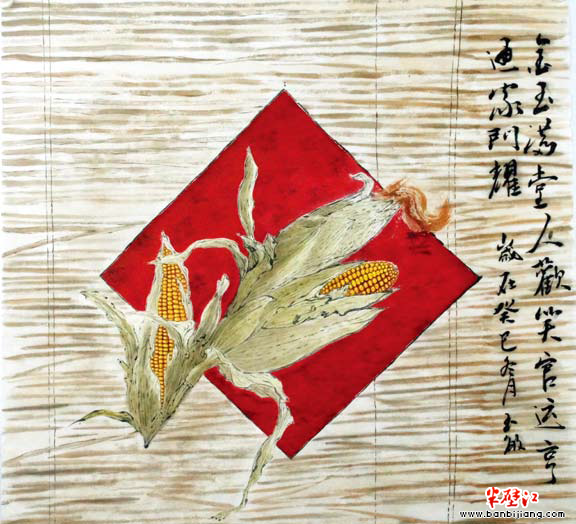 金玉满堂人歡笑官运亨
通家门耀 歲在癸巳冬月玉敏
半壁江
www.banbijiang.com